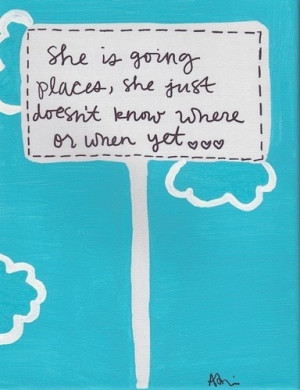 She is going
places, she just
doesn't know where
or when yet